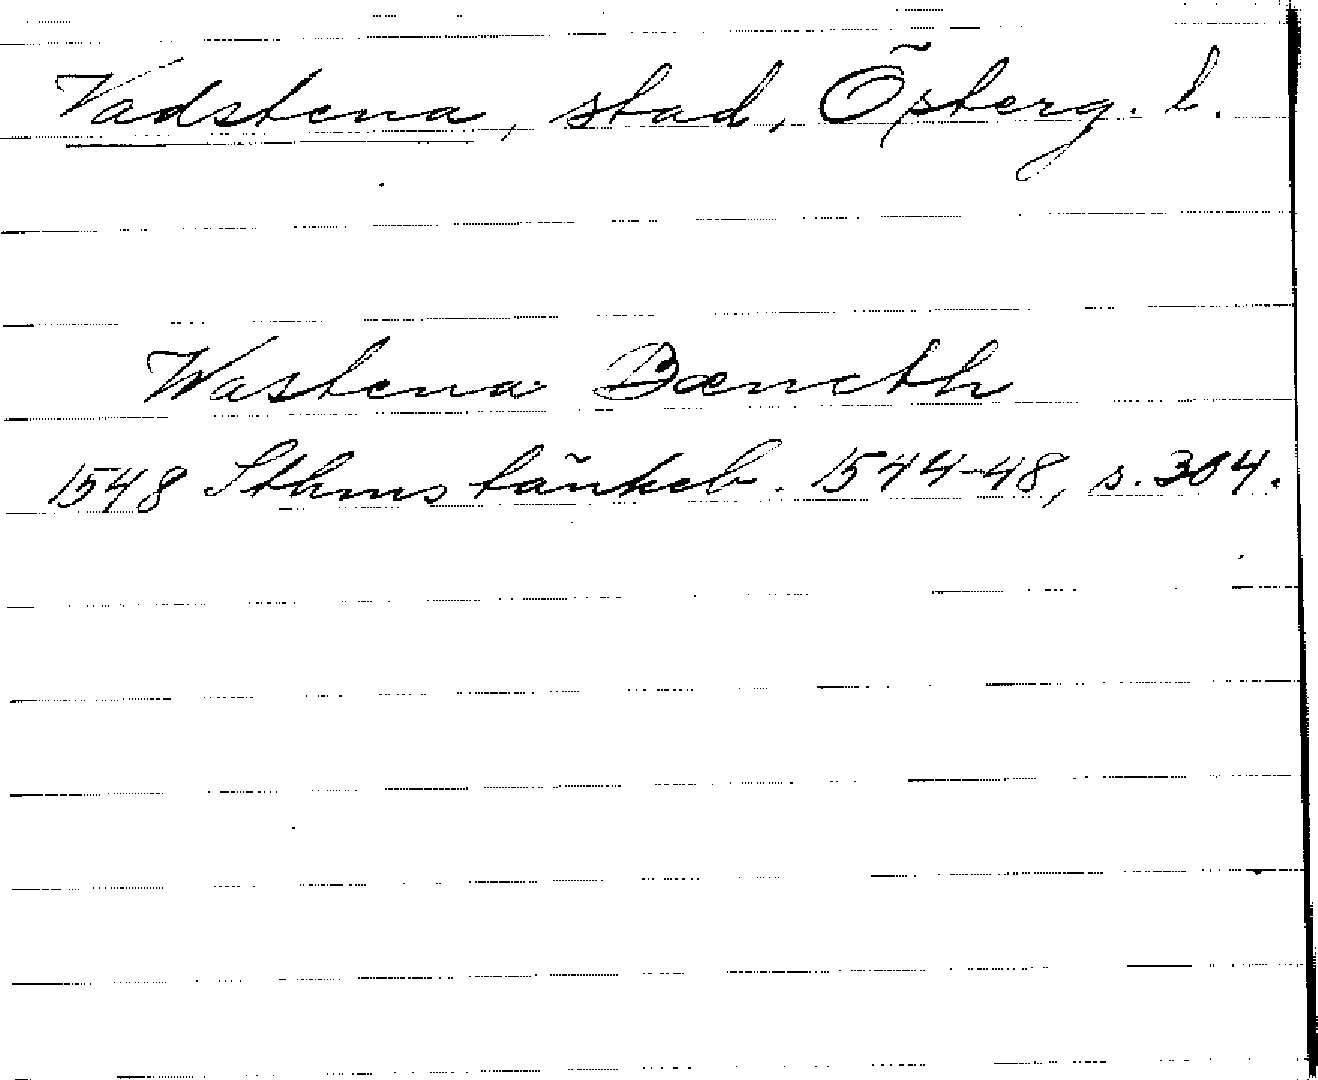 Vadstena, stad, Österg. l.
Wastena Bæncth
1548 Sthms tänkeb. 1544-48, s. 304.